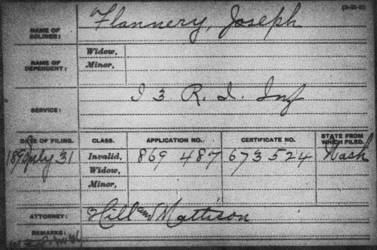 NAME OF SOLDIER: Flannery, Joseph
NAME OF DEPENDENT: Widow,
Minor,
SERVICE: I 3 R. I. Inf
DATE OF FILING. CLASS. APPLICATION NO. CERTIFICATE NO. STATE FROM WHICH FILED.
July 31 Invalid, 869 487 673 524 Wash
Widow,
Minor,
ATTORNEY: Hill Mattison
REMARKS: